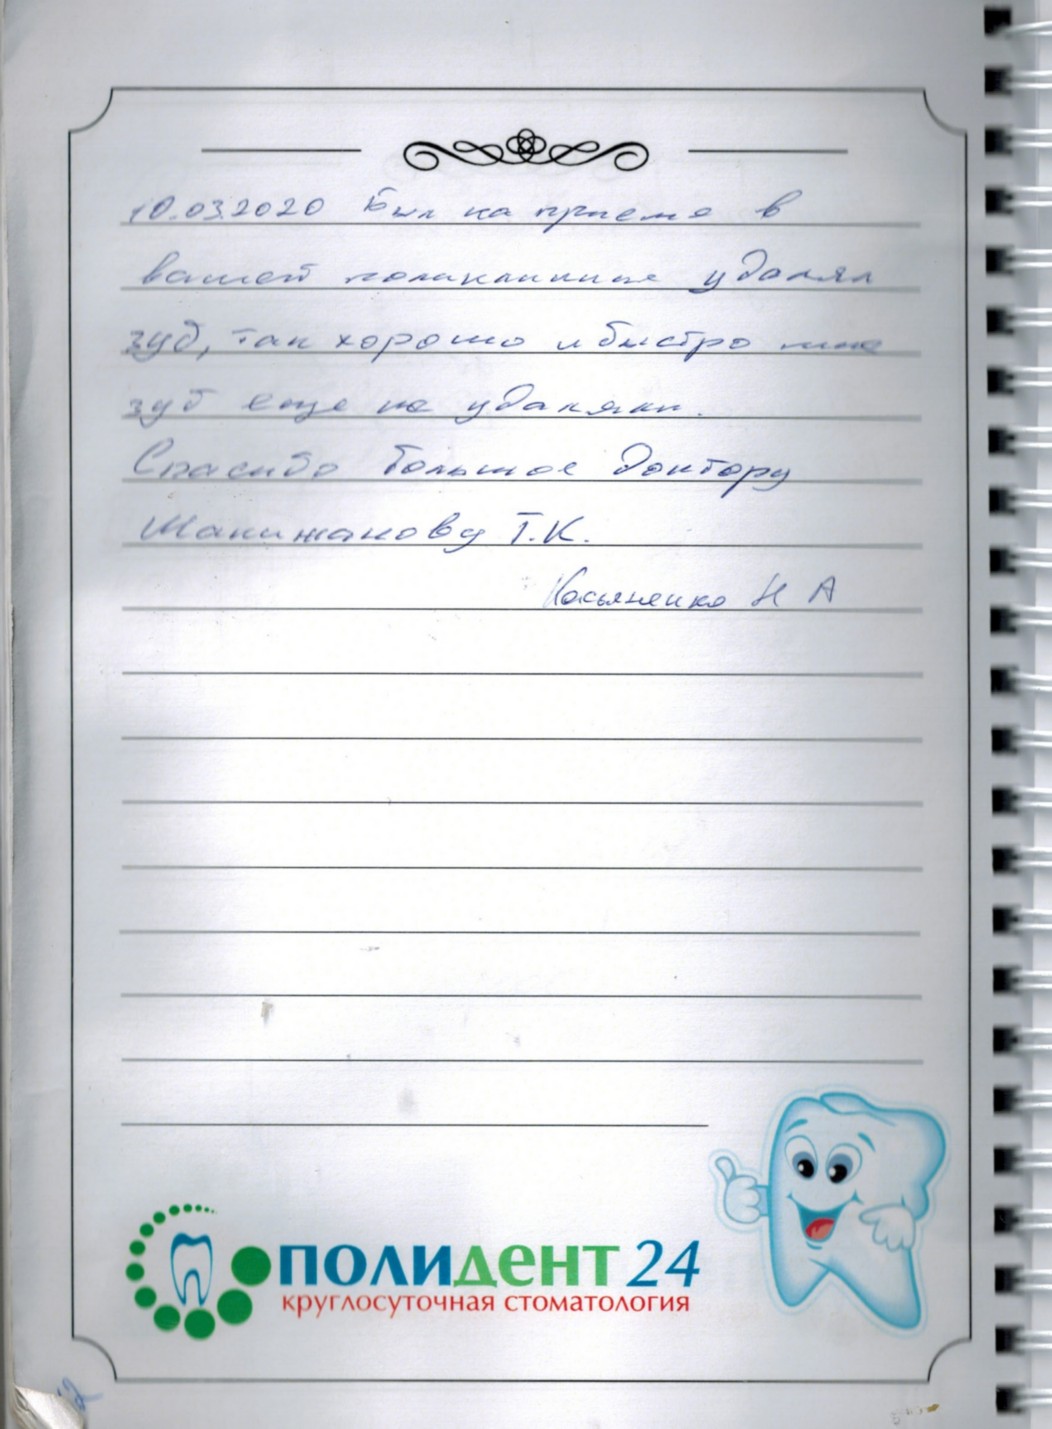 10.03.2020 Был на приеме в
вашей поликлинице удалял
зуб, так хорошо и быстро мне
зуб еще не удаляли.
Спасибо большое Доктору
Шанижанову Т.К.
Касьяненко Н А
ПОЛИДЕНТ 24
круглосуточная стоматология